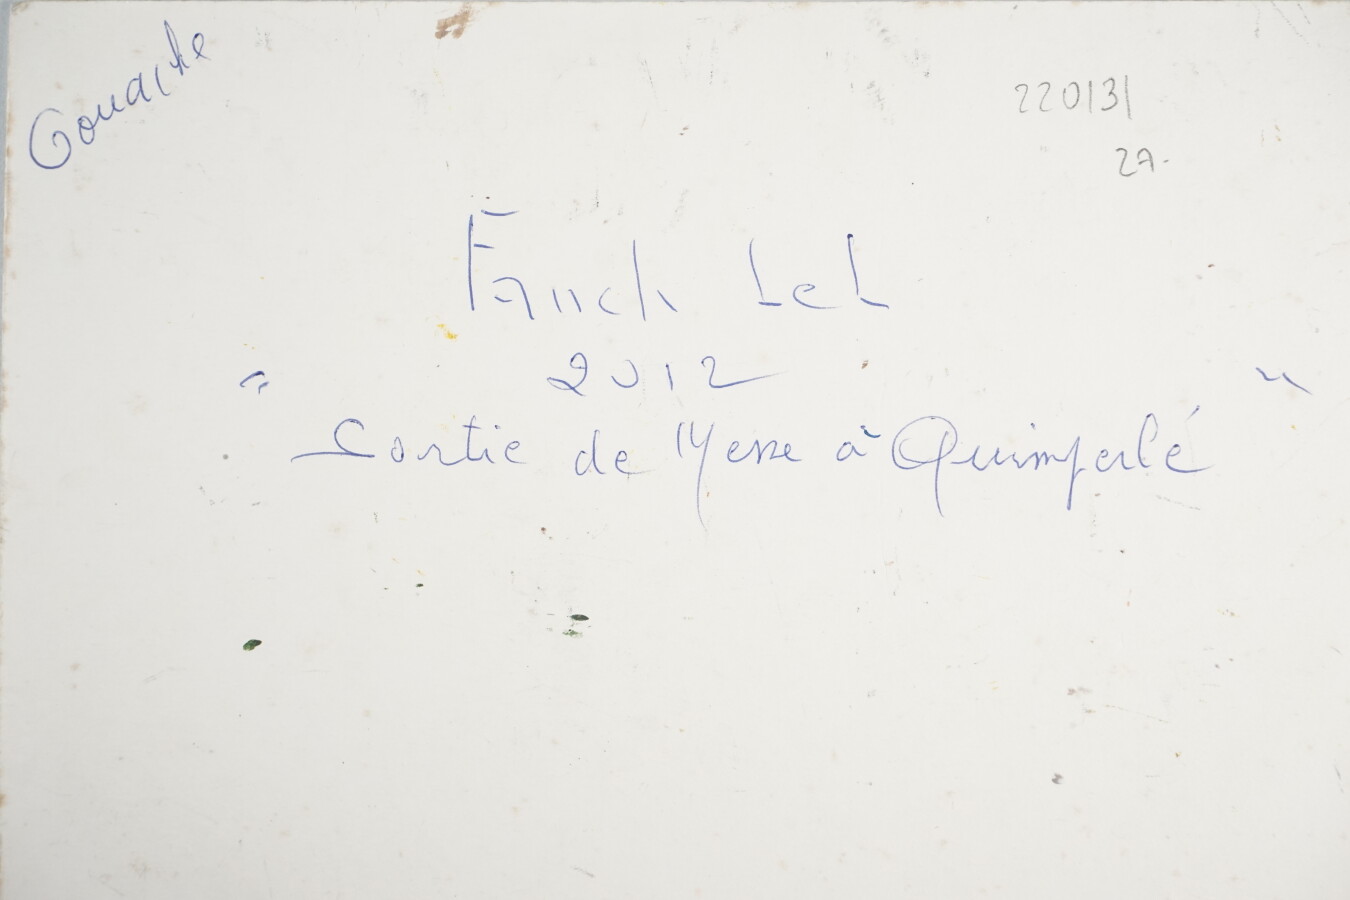 Gouache
220131
27.
Fanch Lel
2012
" Sortie de Messe à Quimperlé "